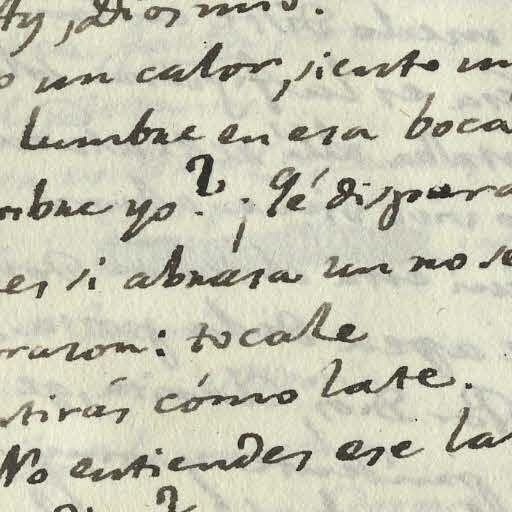 Ay, Dios mio.
un calor, siento un
lumbre en esa boca
mbre yo? ¡Qé dispara
es si abrasa un no se
razon: tocale
ntirás cómo late.
No entiendes ese la